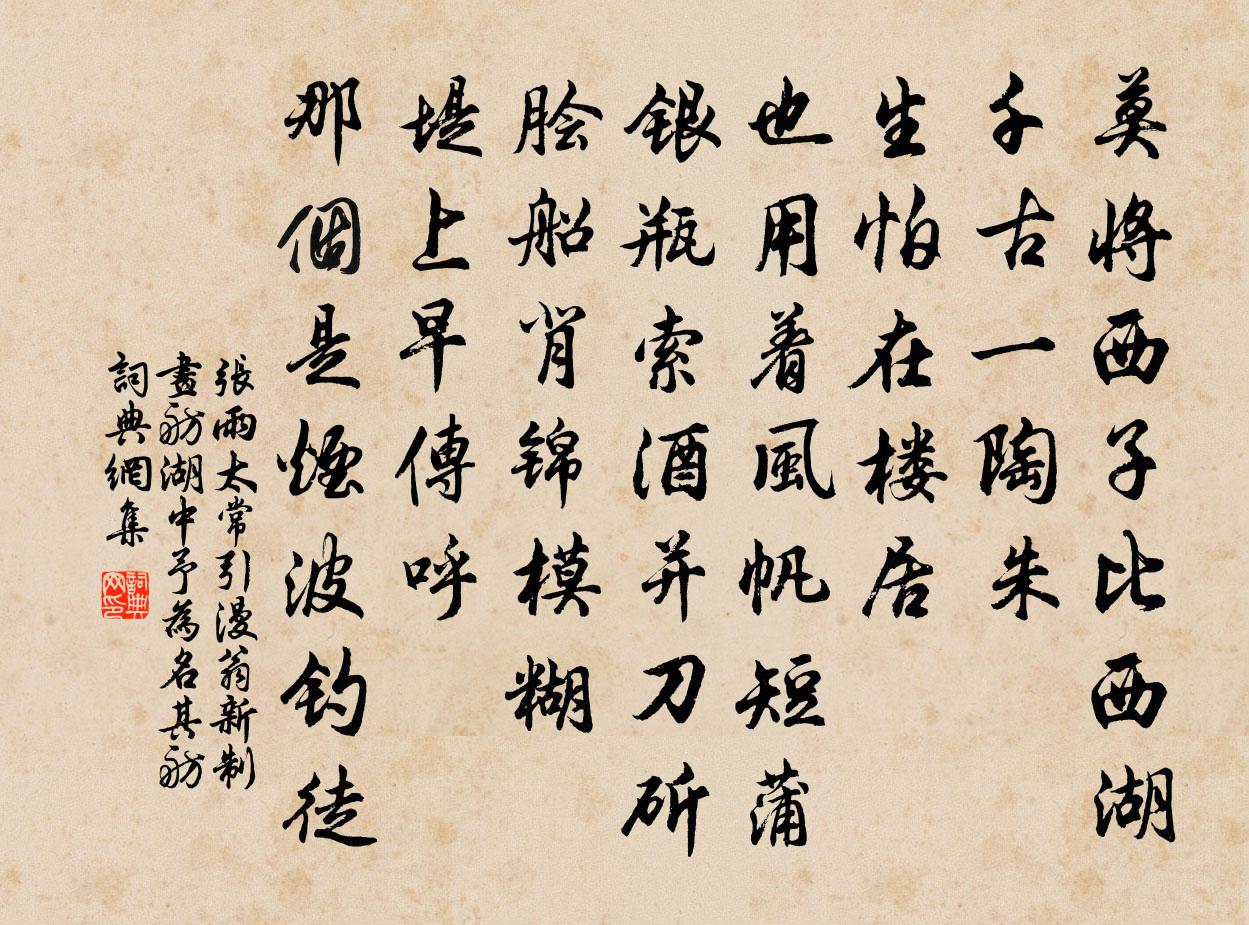 莫將西子比西湖
千古一陶朱
生怕在楼居
也用着風帆短蒲
银瓶索酒并刀斫
脍船背锦模糊
堤上早傳呼
那個是煙波钓徒
張雨太常引漫翁新制
畫舫湖中予為名其舫
詞典網集
詞典网印